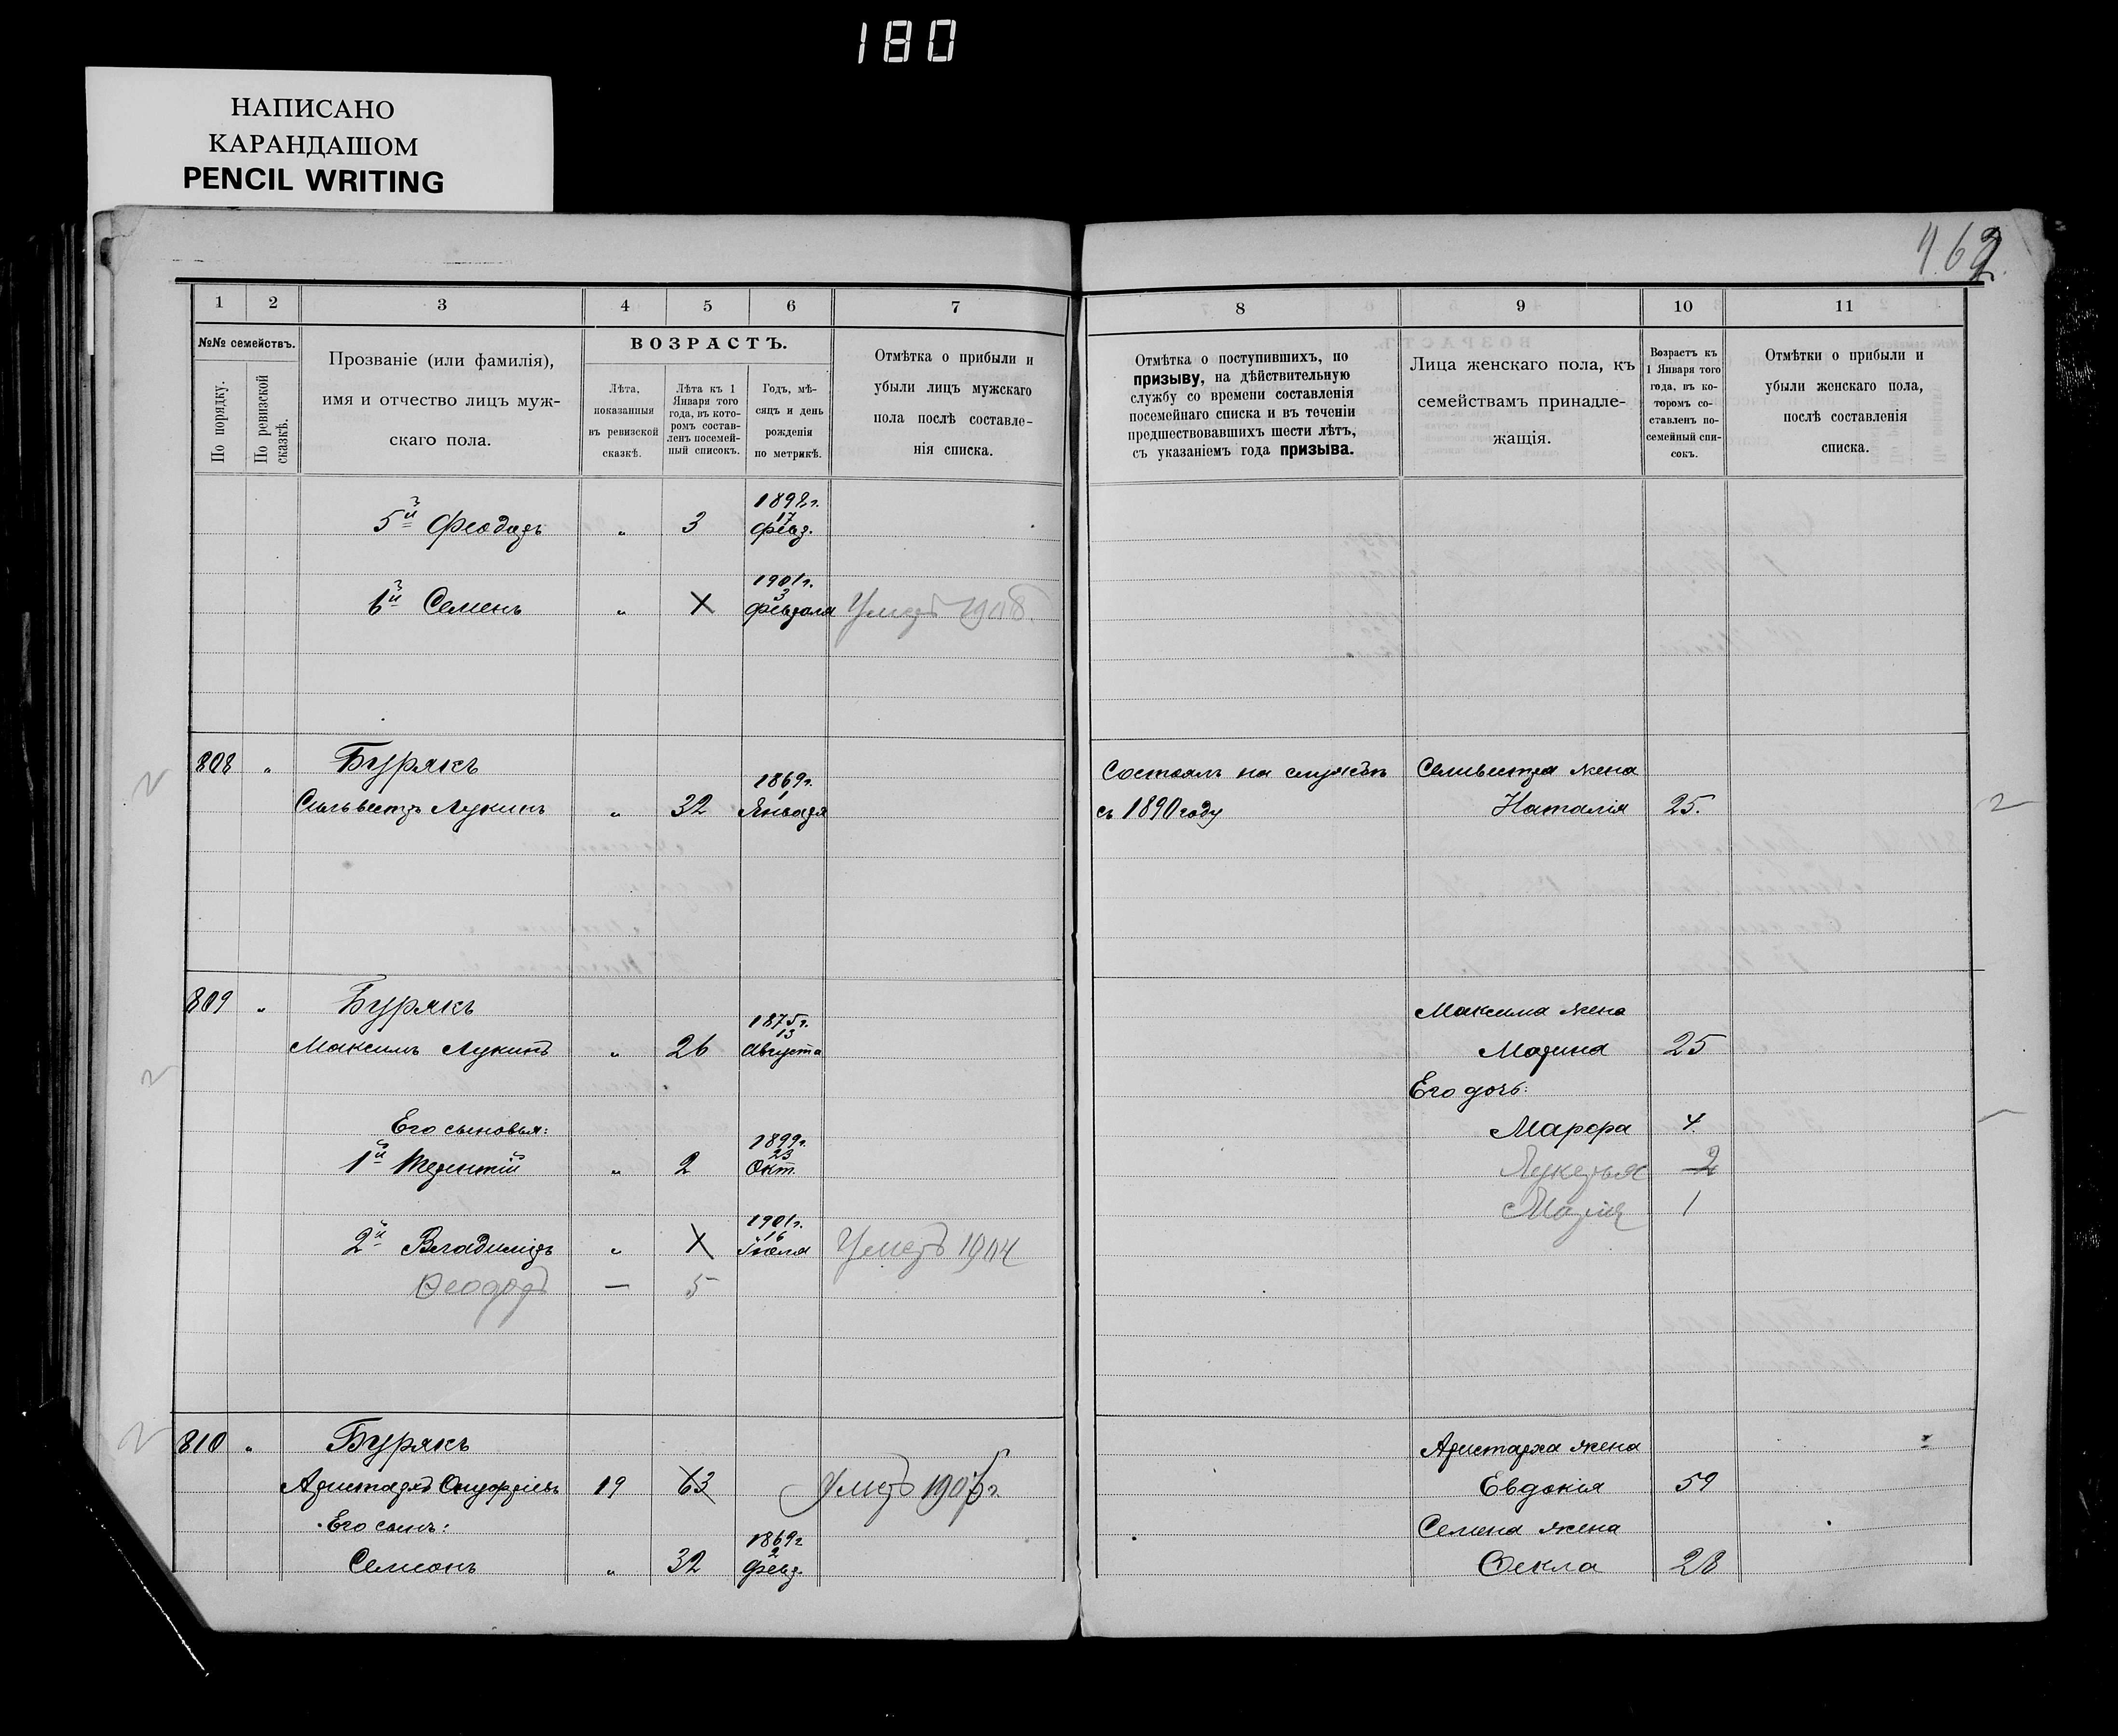 180
НАПИСАНО
КАРАНДАШОМ
PENCIL WRITING
462.
1 2 3 4 5 6 7
№№ семействъ.
По порядку.
По ревизской сказкѣ.
Прозваніе (или фамилія),
имя и отчество лицъ муж-
скаго пола.
ВОЗРАСТЪ.
Лѣта,
показанныя
въ ревизской
сказкѣ.
Лѣта къ 1
Января того
года, въ кото-
ромъ состав-
ленъ посемей-
ный списокъ.
Годъ, мѣ-
сяцъ и день
рожденія
по метрикѣ.
Отмѣтка о прибыли и
убыли лицъ мужскаго
пола послѣ составле-
нія списка.
8 9 10 11
Отмѣтка о поступившихъ, по
призыву, на дѣйствительную
службу со времени составленія
посемейнаго списка и въ теченіи
предшествовавшихъ шести лѣтъ,
съ указаніемъ года призыва.
Лица женскаго пола, къ
семействамъ принадле-
жащія.
Возрастъ къ
1 Января того
года, въ ко-
торомъ со-
ставленъ по-
семейный спи-
сокъ.
Отмѣтки о прибыли и
убыли женскаго пола,
послѣ составленія
списка.
1898г.
17
5й Феодоръ „ 3 Февр.
1901г.
3
6й Семенъ „ X Февраля Умеръ 1908.
808 „ Бурякъ
1869г.
1
Сильвестръ Лукинъ „ 32 Января
Состоялъ на службѣ
съ 1890 году
Сильвестра жена
Наталія 25.
809 „ Бурякъ
1875г.
13
Максимъ Лукинъ „ 26 Августа
Его сыновья:
1899г.
23
1й Терентій „ 2 Окт.
1901г.
16
2й Владиміръ „ X Іюля Умеръ 1904
Феодоръ — 5
Максима жена
Марина 25
Его дочь:
Марфа 4.
Лукерья 2
Марія 1
810 „ Бурякъ
Аристархъ Онуфріевъ 19 63 Умеръ 1906г.
Его сынъ:
1869г
2
Семіонъ „ 32 Февр.
Аристарха жена
Евдокія 59
Семена жена
Фекла 28